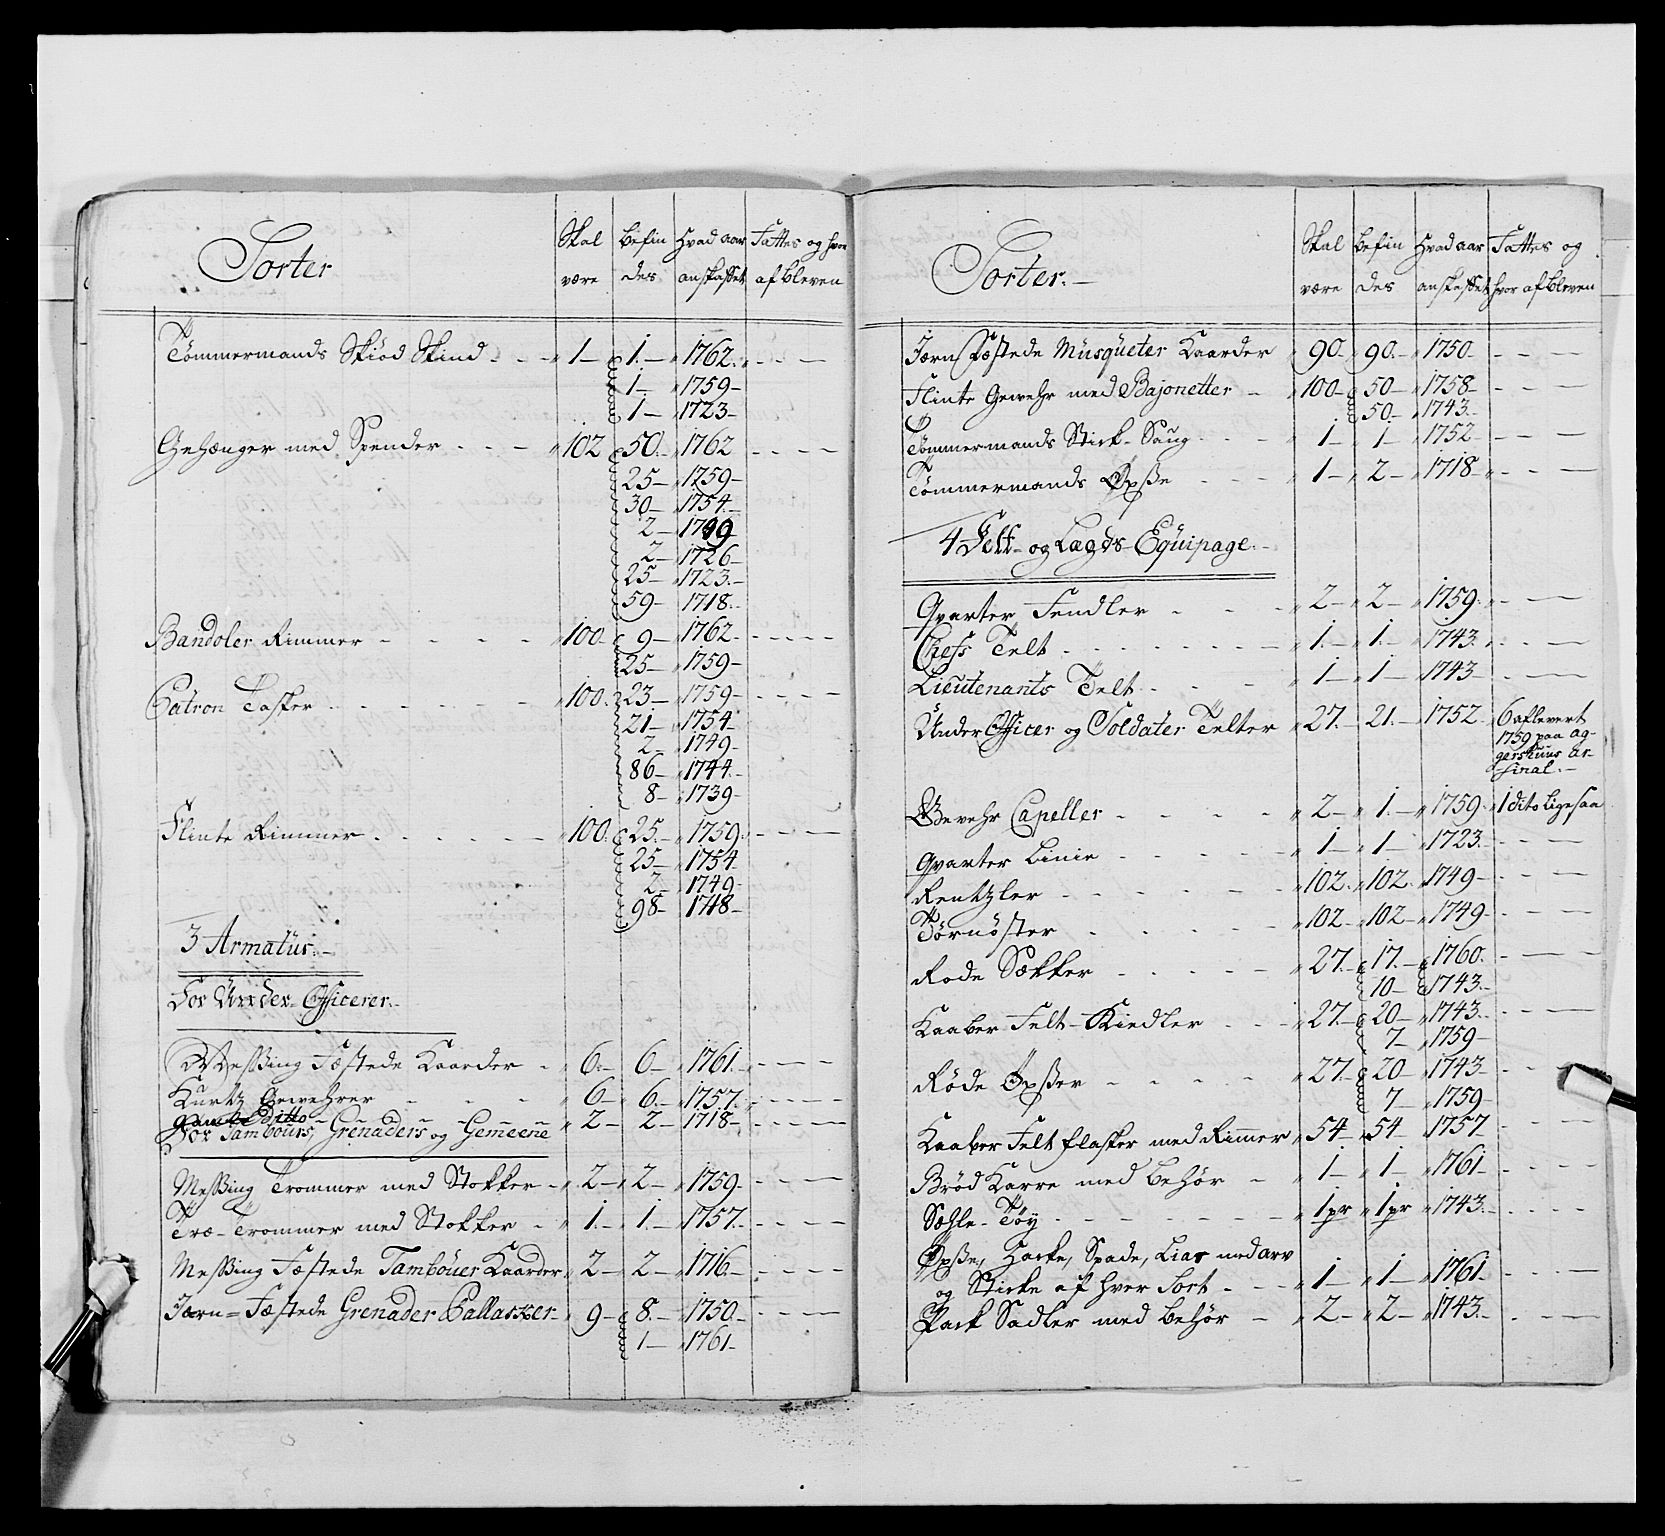 Sorter | Skal være | befin des | Hvad aar anskaffet | Fattes og hvor afbleven
Tömmermands Skiöd Skind - - - | 1 | 1 | 1762 | - - -
1 | 1759
1 | 1723
Gehænger med Spender - - - | 102 | 50 | 1762 | - - - -
25 | 1759
30 | 1754
2 | 1749
2 | 1726
25 | 1723
59 | 1718
Bandoler Rimmer - - - - | 100 | 9 | 1762 | - - - -
25 | 1759
Patron Tasker - - - - - | 100 | 23 | 1759 | - - - -
21 | 1754
2 | 1749
86 | 1744
8 | 1739
Flinte Rimmer - - - - - | 100 | 25 | 1759 | - - - -
25 | 1754
2 | 1749
98 | 1718
3 Armatür.
For Under Officerer.
Messing Fæstede Kaarder - | 6 | 6 | 1761 | - - - -
Kurtz Gewehrer - - - | 6 | 6 | 1757 | - - - -
gamle Ditto | 2 | 2 | 1718 | - - - -
For Tambours, Grenaders og Gemeene
Messing Trommer med Stokker | 2 | 2 | 1759 | - - - -
Træ-Trommer med Stokker - | 1 | 1 | 1757 | - - - -
Messing Fæstede Tambouer Kaarder | 2 | 2 | 1716 | - - - -
Jærn=Fæstede Grenader Pallasker | 9 | 8 | 1750 | - - - -
1 | 1761
Sorter. | Skal være | befin des | Hvad aar anskaffet | Fattes og hvor afbleven
Jærn Fæstede Müsqueter Kaarder | 90 | 90 | 1750 | - - -
Flinte Gewehr med Bajonetter - | 100 | 50 | 1758 | - - -
50 | 1743
Tömmermands Stik-Saug - - - | 1 | 1 | 1752 | - - -
Tömmermands Øxße - - - | 1 | 2 | 1718 | - - -
4 Felt- og Lægds-Equipage.
Qvarter Fendler - - - | 2 | 2 | 1759 | - - -
Chefs Telt - - - - - - | 1 | 1 | 1743 | - - -
Lieutenants Telt - - - | 1 | 1 | 1743 | - - -
Under Officer og Soldater Telter | 27 | 21 | 1752 | 6 aflevert
1759 paa Ag-
gershuus Ar-
sinal.
Gevehr Capeller - - - - | 2 | 1 | 1759 | 1 dito ligesaa
Qvarter Linie - - - - | 1 | 1 | 1723 | - - -
Rentzler - - - - - | 102 | 102 | 1749 | - - -
Tornøster - - - - | 102 | 102 | 1749 | - - -
Rode Sækker - - - - - | 27 | 17 | 1760 | - - -
10 | 1743
Kaaber Felt-Kiedler - - - | 27 | 20 | 1743 | - - -
7 | 1759
Røde Øxßer - - - - - | 27 | 20 | 1743 | - - -
7 | 1759
Kaaber Felt flasker med Rimmer | 54 | 54 | 1757 | - - -
Brød Karre med behør - | 1 | 1 | 1761 | - - - -
Sæhle-Tøy - - - - - - | 1 pr | 1 pr | 1743 | - - - -
Øxße, Hacke, Spade, Liae med Orv
og Stikke af hver Sort - - - | 1 | 1 | 1761 | - - -
Pack Sadler med behør - | 2 | 2 | 1743 | - - -